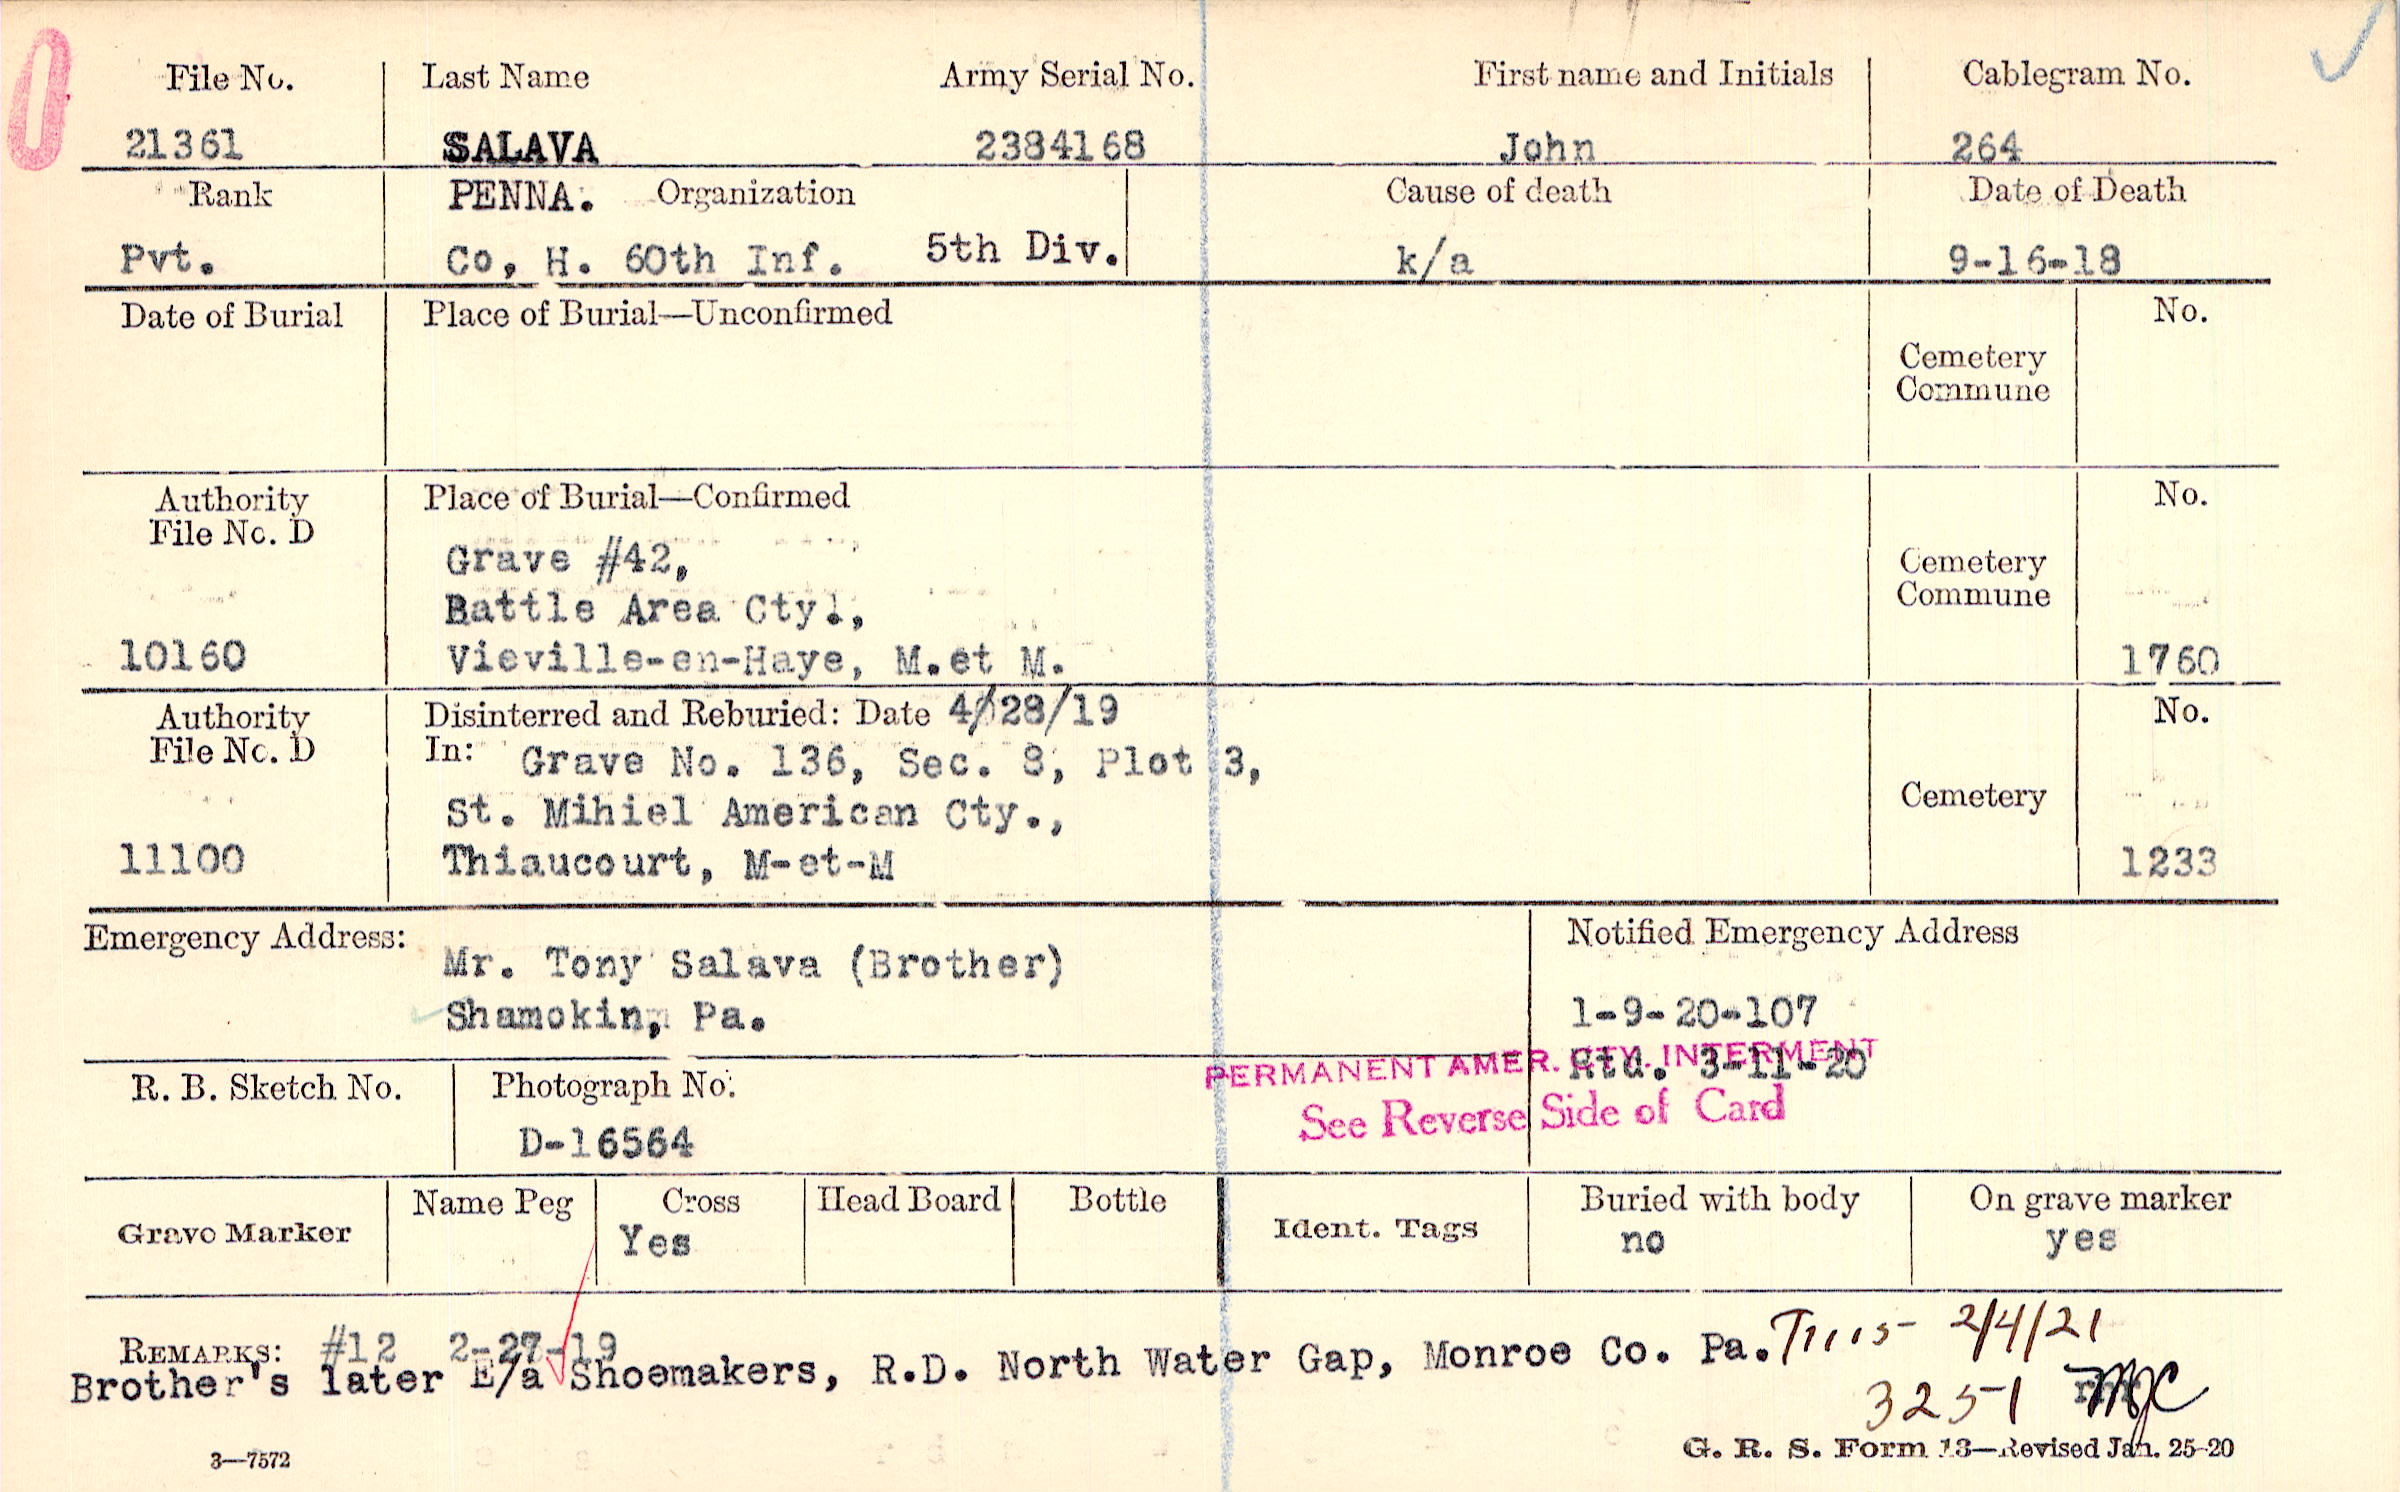 File No. Last Name Army Serial No. First name and Initials Cablegram No.
21361 SALAVA 2384168 John 264
Rank PENNA. Organization Cause of death Date of Death
Pvt. Co, H. 60th Inf. 5th Div. k/a 9-16-18
Date of Burial Place of Burial—Unconfirmed No.
Cemetery
Commune
Authority Place of Burial—Confirmed No.
File No. D
Grave #42,
Cemetery
Battle Area Cty.,
Commune
10160 Vieville-en-Haye, M.et M. 1760
Authority Disinterred and Reburied: Date 4/28/19 No.
File No. D In: Grave No. 136, Sec. 8, Plot 3,
St. Mihiel American Cty., Cemetery
11100 Thiaucourt, M-et-M 1233
Emergency Address: Notified Emergency Address
Mr. Tony Salava (Brother)
Shamokin, Pa. 1-9-20-107
Rtd. 3-11-20
PERMANENT AMER. CTY. INTERMENT
R. B. Sketch No. Photograph No.
See Reverse Side of Card
D-16564
Grave Marker Name Peg Cross Head Board Bottle Ident. Tags Buried with body On grave marker
Yes no yes
REMARKS: #12 2-27-19 2/4/21
Brother's later E/a Shoemakers, R.D. North Water Gap, Monroe Co. Pa.
3251
3—7572 G. R. S. Form 13—Revised Jan. 25-20